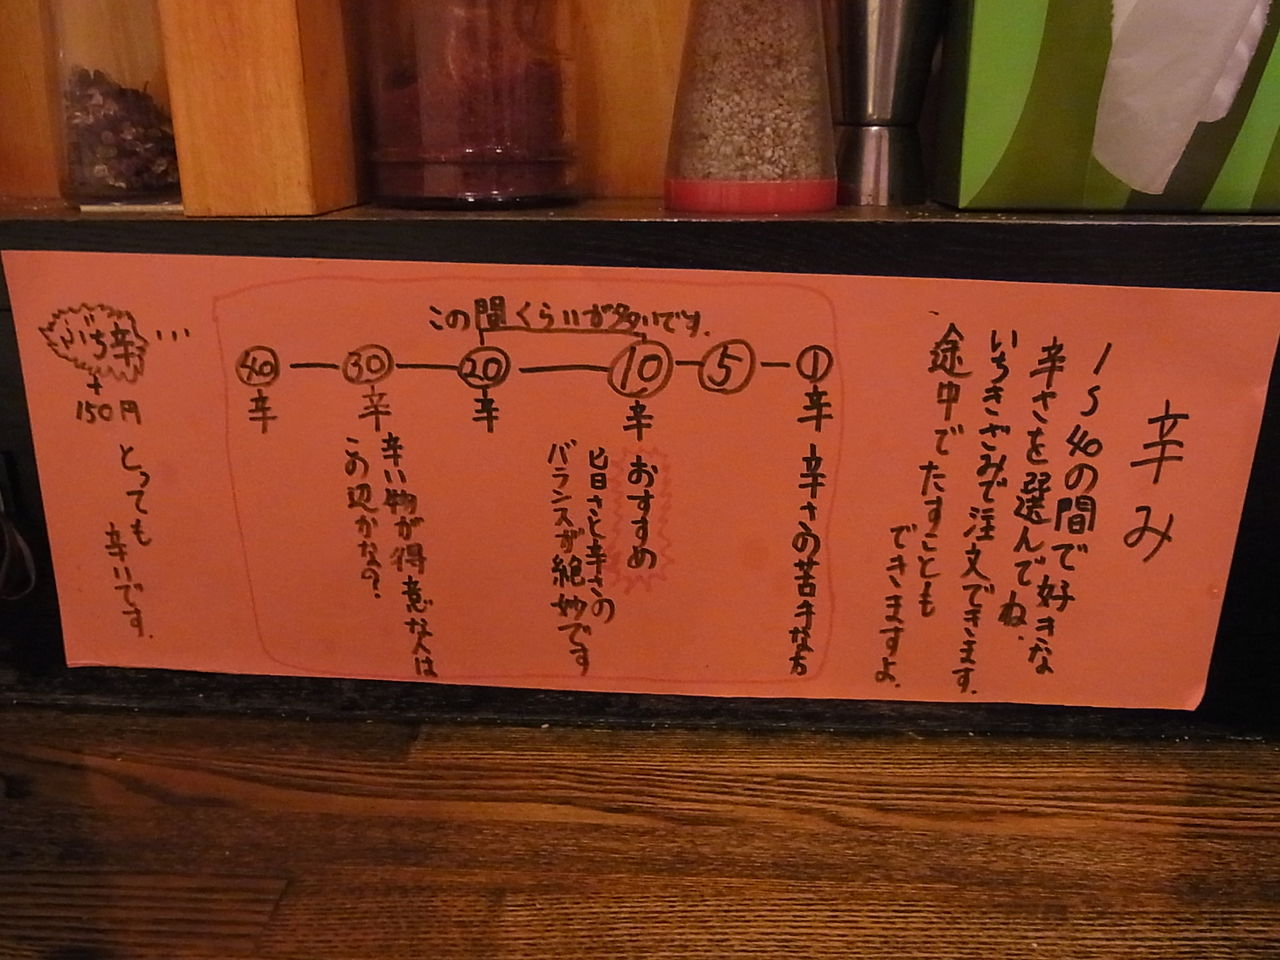 辛み
1〜40の間で好きな
辛さを選んでね.
いちきざみで注文できます.
途中でたすことも
できますよ.
この間くらいが多いです.
①辛 辛さの苦手な方
⑤
⑩辛 おすすめ
旨さと辛さの
バランスが絶妙です
⑳辛
㉚辛 辛い物が得意な人は
この辺かな?
㊵辛
ぶち辛…
+
150円
とっても
辛いです.